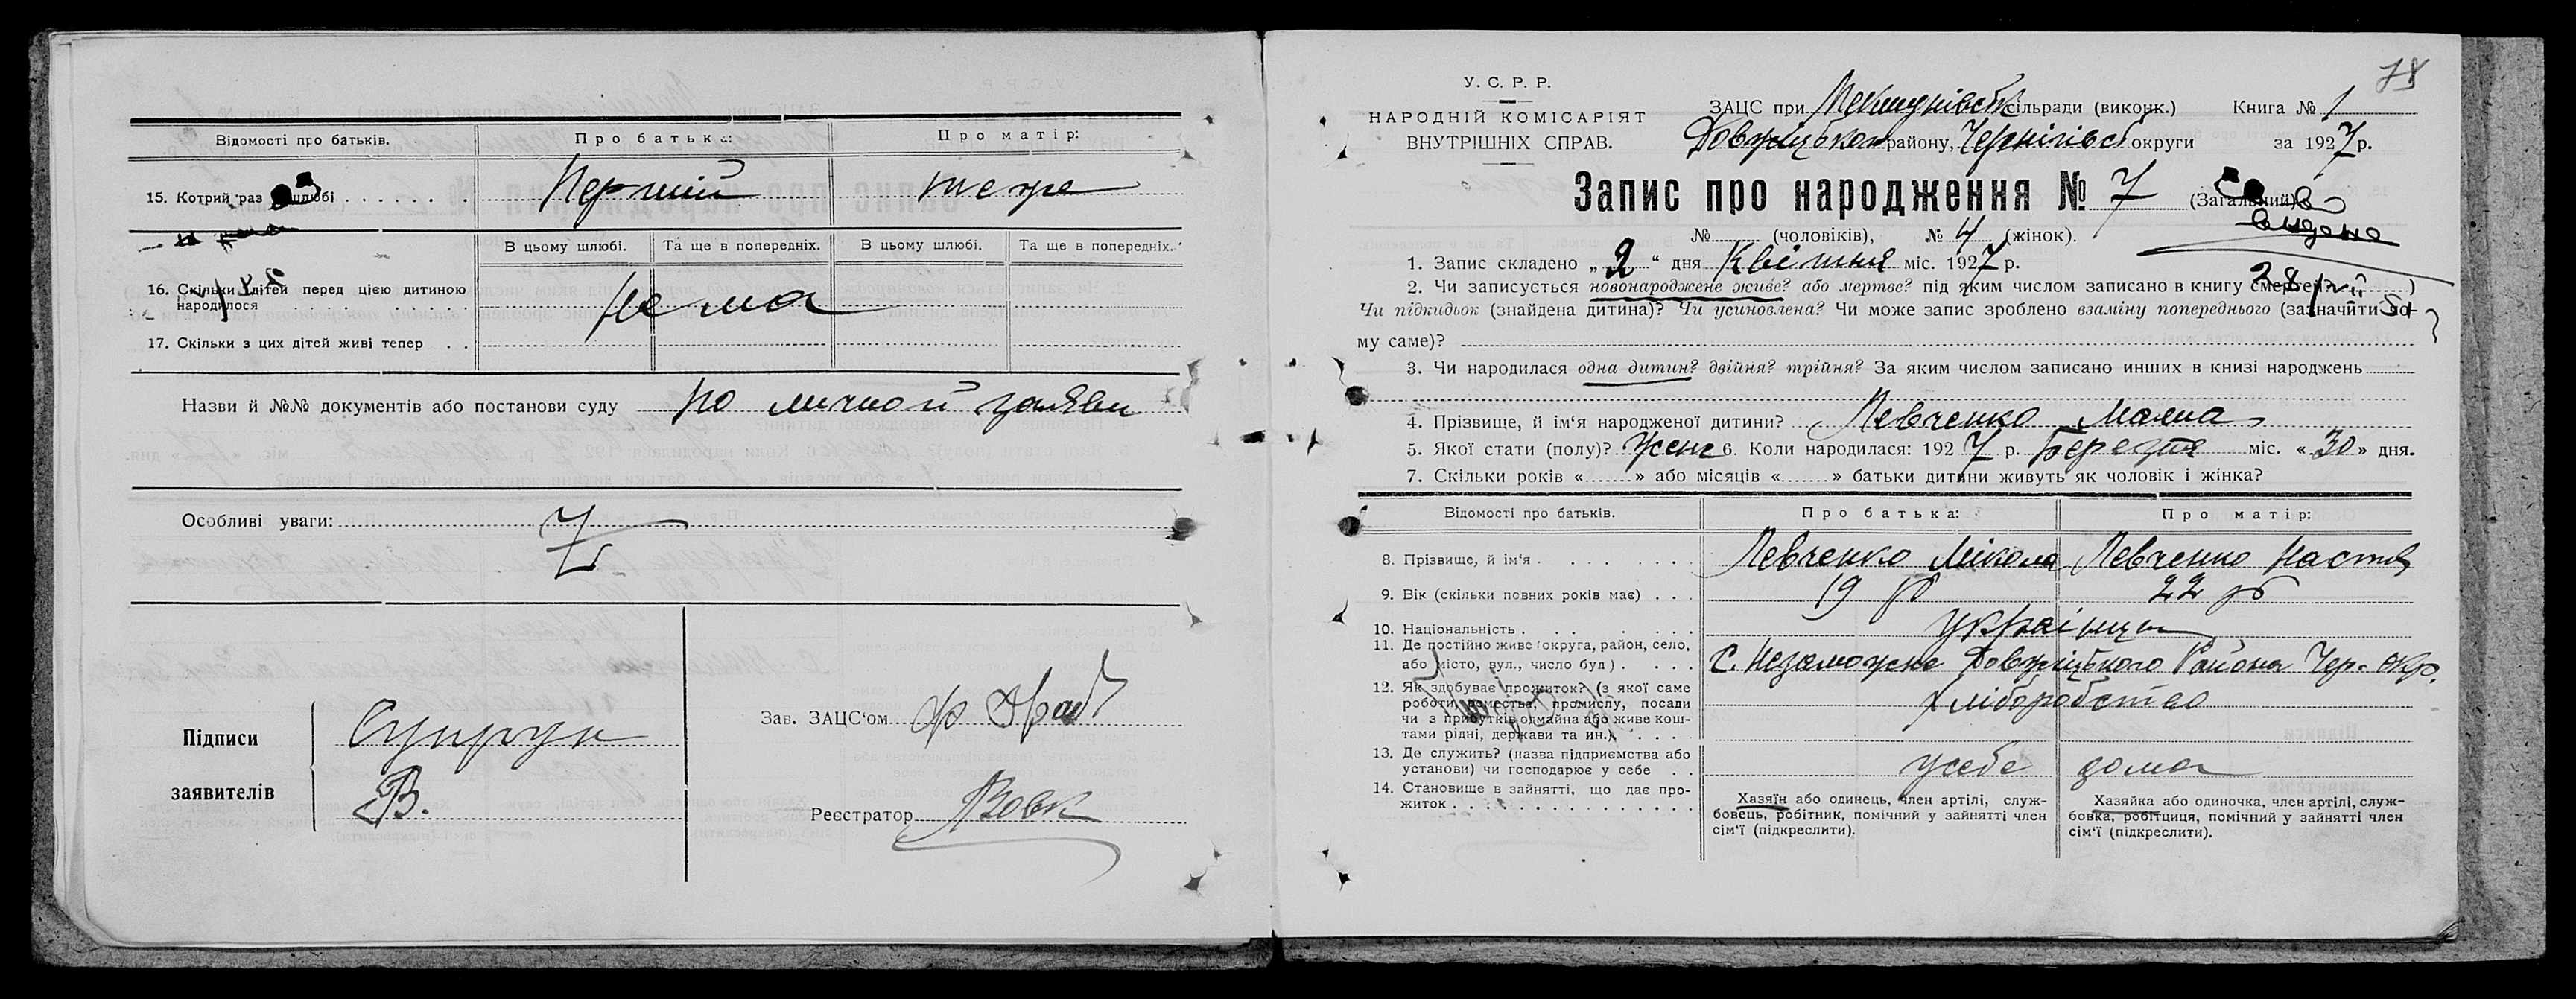 Відомості про батьків.
Про батька:
Про матір:
15. Котрий раз в шлюбі
Перший
теже
В цьому шлюбі.
Та ще в попередніх.
В цьому шлюбі.
Та ще в попередніх.
16. Скільки дітей перед цією дитиною
народилося
Нема
17. Скільки з цих дітей живі тепер
Назви й №№ документів або постанови суду по личной заяви
Особливі уваги:
Підписи
заявителів
Супрун
В.
Зав. ЗАЦС'ом
Реєстратор Вовк
78
У. С. Р. Р.
НАРОДНІЙ КОМІСАРІЯТ
ВНУТРІШНІХ СПРАВ.
ЗАЦС при сільради (виконк.) Книга № 1
району, Чернігівсь округи за 1927 р.
Запис про народження № 7 (Загальний)
видано
№ (чоловіків), № 4 (жінок).
1. Запис складено „2“ дня Квітня міс. 1927 р.
2. Чи записується новонароджене живе? або мертве? під яким числом записано в книгу смертей? )
Чи підкидьок (знайдена дитина)? Чи усиновлена? Чи може запис зроблено взаміну попереднього (зазначити
му саме)?
3. Чи народилася одна дитин? двійня? трійня? За яким числом записано инших в книзі народжень
4. Прізвище, й ім'я народженої дитини? Левченко
5. Якої стати (полу)? жено 6. Коли народилася: 1927 р. Березня міс. «30» дня.
7. Скільки років « » або місяців « » батьки дитини живуть як чоловік і жінка?
Відомості про батьків.
Про батька:
Про матір:
8. Прізвище, й ім'я
Левченко Мікола
Левченко Настя
9. Вік (скільки повних років має)
19
22
10. Національність
Українци
11. Де постійно живе (округа, район, село,
або місто, вул., число буд)
с. Незаможне Довжицького Района Чер. Окр.
12. Як здобуває прожиток? (з якої саме
роботи, ремества, промислу, посади
чи з прибутків одмайна або живе кош-
тами рідні, держави та ин.)
хліборобство
13. Де служить? (назва підприємства або
установи) чи господарює у себе
усебе дома
14. Становище в зайнятті, що дає про-
житок
Хазяїн або одинець, член артілі, служ-
бовець, робітник, помічний у зайнятті член
сім'ї (підкреслити).
Хазяйка або одиночка, член артілі, служ-
бовка, робітниця, помічний у зайнятті член
сім'ї (підкреслити).